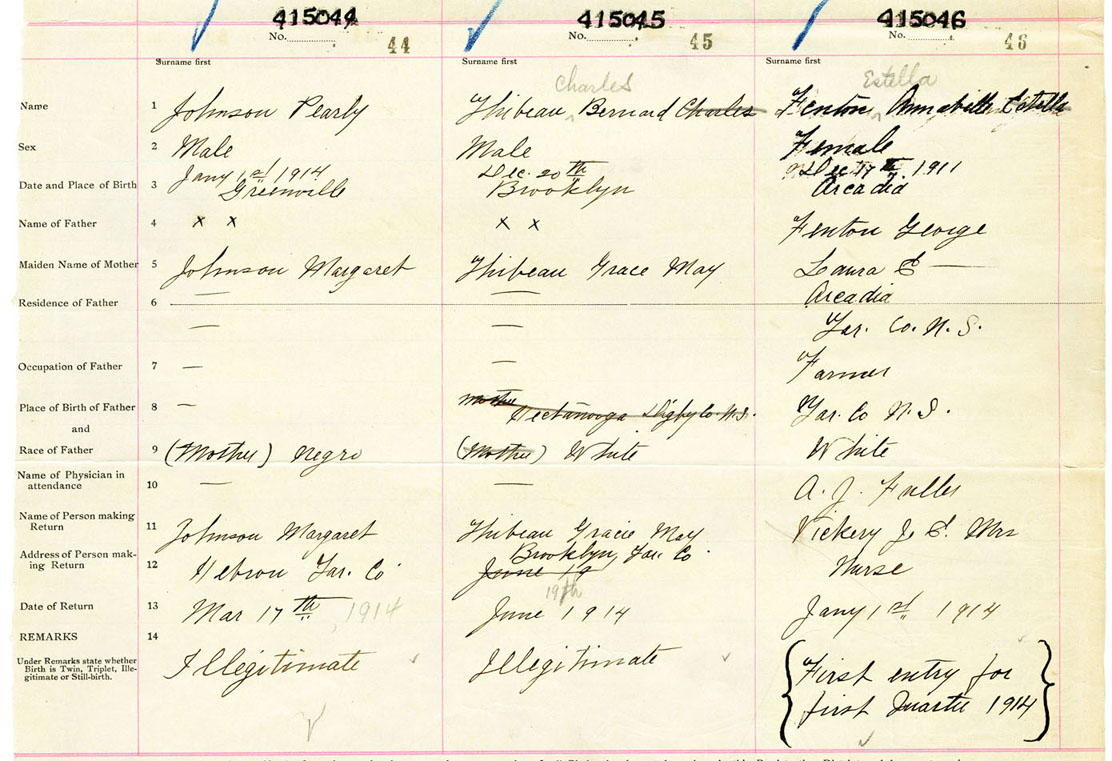 415044 415045 415046
No. 44 No. 45 No. 46
Surname first Surname first Surname first
Charles Estella
Name 1 Johnson Pearly Thibeau Bernard Charles Fenton Annabelle Estella
Sex 2 Male Male Female
Date and Place of Birth 3 Jany 1st 1914 Dec. 20th Dec 17th. 1911
Greenville Brooklyn Arcadia
Name of Father 4 x x x x Fenton George
Maiden Name of Mother 5 Johnson Margaret Thibeau Grace May Laura E —
Residence of Father 6 — — Arcadia
— — Yar. Co. N. S.
Occupation of Father 7 — — Farmer
Place of Birth of Father 8 — mother Hectanooga Digby Co. N.S. Yar. Co N. S.
and
Race of Father 9 (Mother) Negro (Mother) White White
Name of Physician in
attendance 10 — — A. J. Fuller
Name of Person making
Return 11 Johnson Margaret Thibeau Gracie May Vickery J. E. Mrs
Address of Person mak-
ing Return 12 Hebron Yar. Co Brooklyn, Yar. Co Nurse
June 19
19th
Date of Return 13 Mar 17th, 1914 June 1914 Jany 1st 1914
REMARKS 14
Under Remarks state whether
Birth is Twin, Triplet, Ille-
gitimate or Still-birth.
Illegitimate Illegitimate First entry for
first Quarter 1914